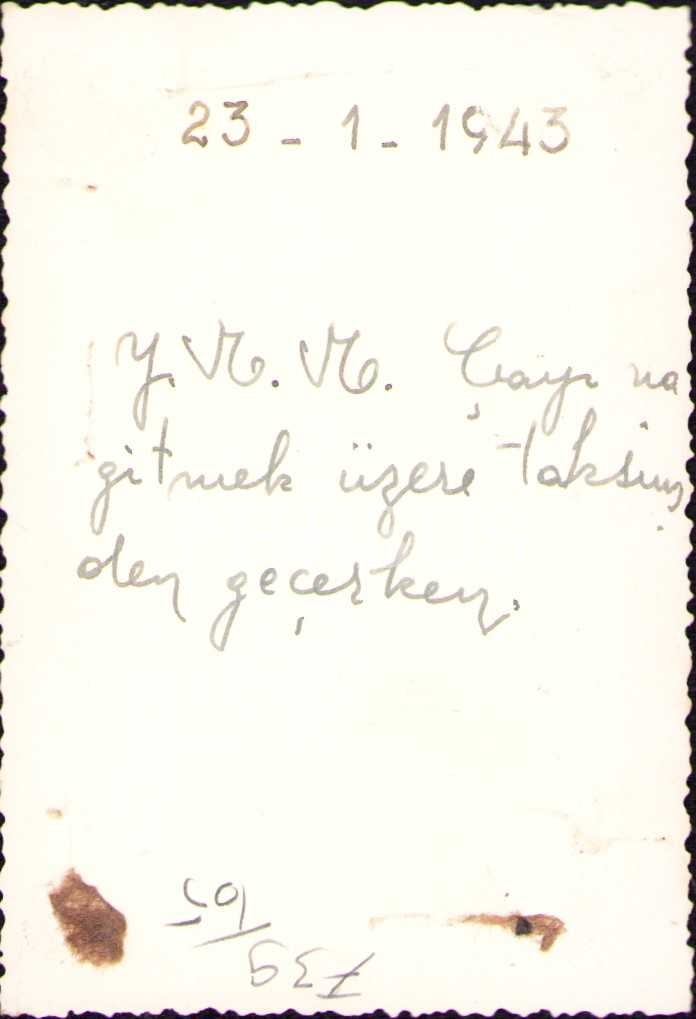 23 - 1 - 1943
Y. M. M. Çayı na
gitmek üzere taksim
den geçerken.
739